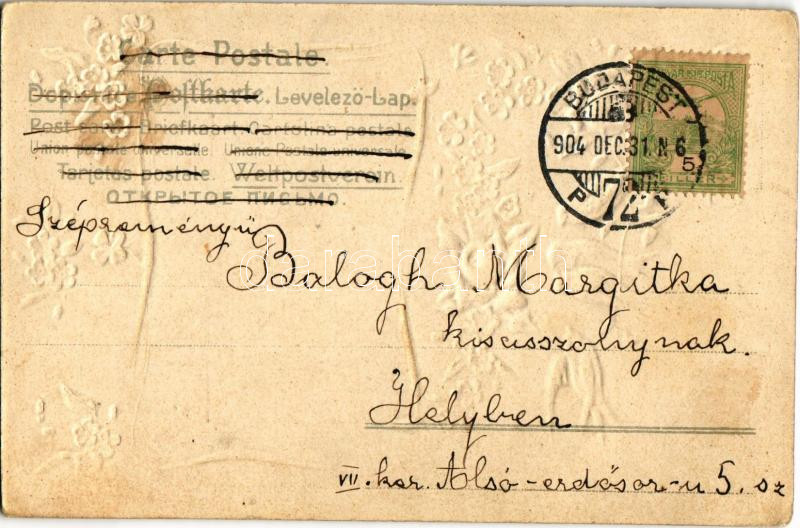 Carte Postale
Postkarte. Levelező-Lap.
Post card. Briefkaart. Cartolina postale
Union postale universelle. Unione Postale universale.
Tarjetas postale. Weltpostverein.
ОТКРЫТОЕ ПИСЬМО.
BUDAPEST
904 DEC. 31. N 6
72
5
Szépreményű
Balogh Margitka
kisasszonynak.
Helyben
VII. ker. Alsó-erdősor-u 5. sz
darabanth